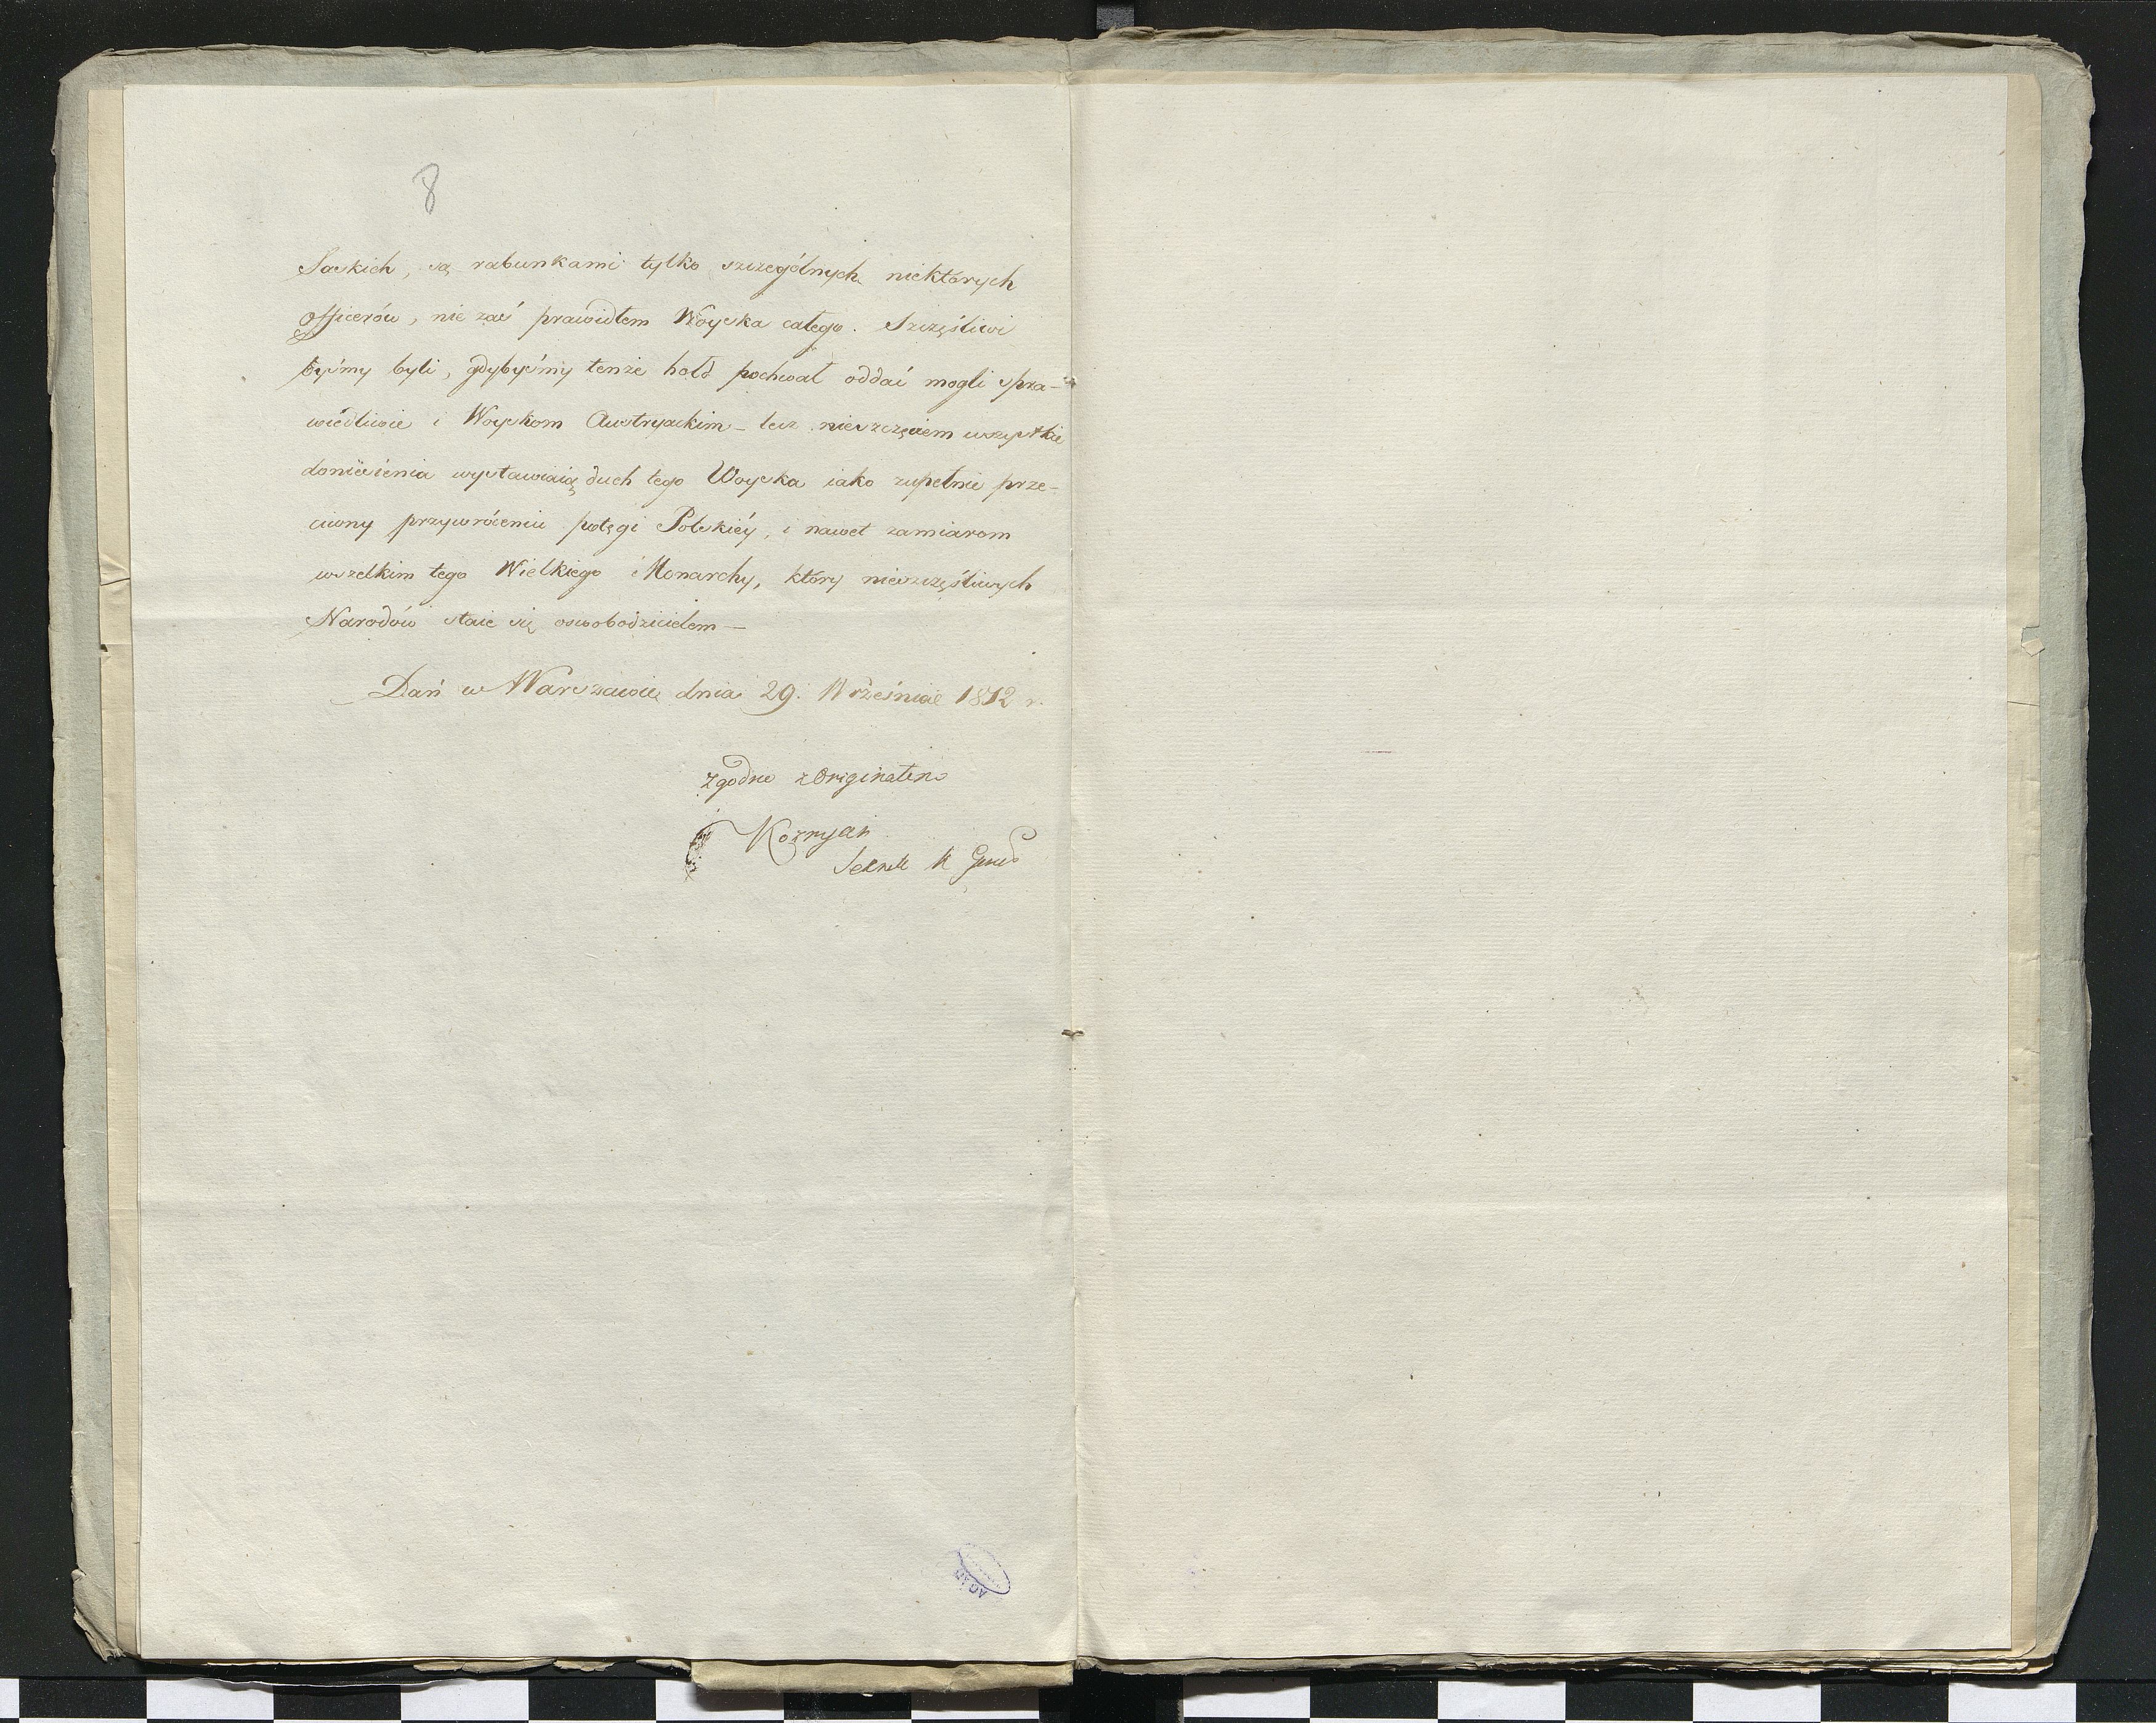 8
Saskich, są rabunkami tylko szczególnych niektórych
officerów, nie zaś prawidłem Woyska całego. Szczęśliwi
byśmy byli, gdybyśmy tenże hołd pochwał oddać mogli spra-
wiedliwie i Woyskom Austryackim – lecz nieszczęściem wszystkie
doniesienia wystawiaią duch tego Woyska iako zupełnie prze-
ciwny przywróceniu potęgi Polskiéy, i nawet zamiarom
wszelkim tego Wielkiego Monarchy, który nieszczęśliwych
Narodów staie się oswobodzicielem –
Dań w Warszawie dnia 29. Września 1812 r.
Zgodno z Originałem
Kozmyan
Sekret K